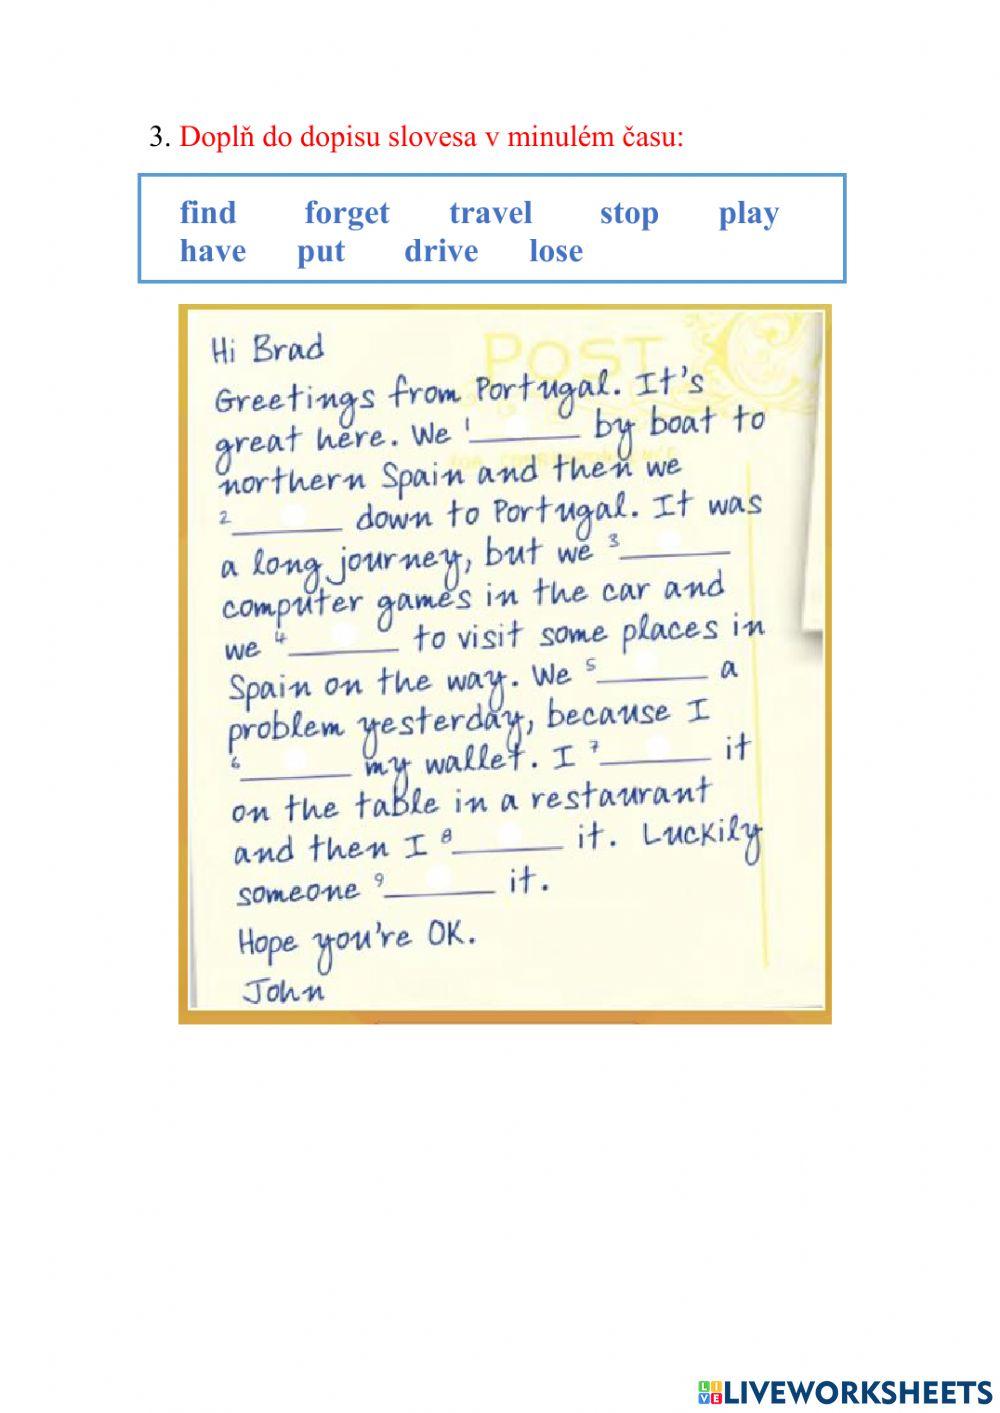 3. Doplň do dopisu slovesa v minulém času:
find forget travel stop play
have put drive lose
POST
Hi Brad
Greetings from Portugal. It's
great here. We 1________ by boat to
northern Spain and then we
2________ down to Portugal. It was
a long journey, but we 3________
computer games in the car and
we 4________ to visit some places in
Spain on the way. We 5________ a
problem yesterday, because I
6________ my wallet. I 7________ it
on the table in a restaurant
and then I 8________ it. Luckily
someone 9________ it.
Hope you're OK.
John
LIVEWORKSHEETS